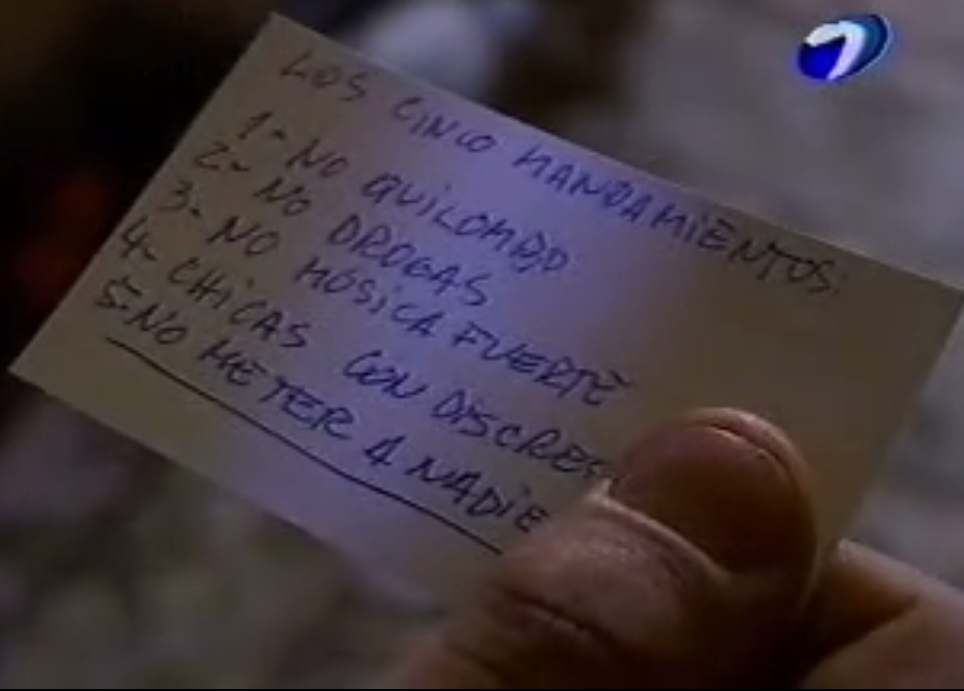 LOS CINCO MANDAMIENTOS:
1- NO QUILOMBO
2- NO DROGAS
3- NO MÚSICA FUERTE
4- CHICAS CON DISCREC
5- NO METER A NADIE